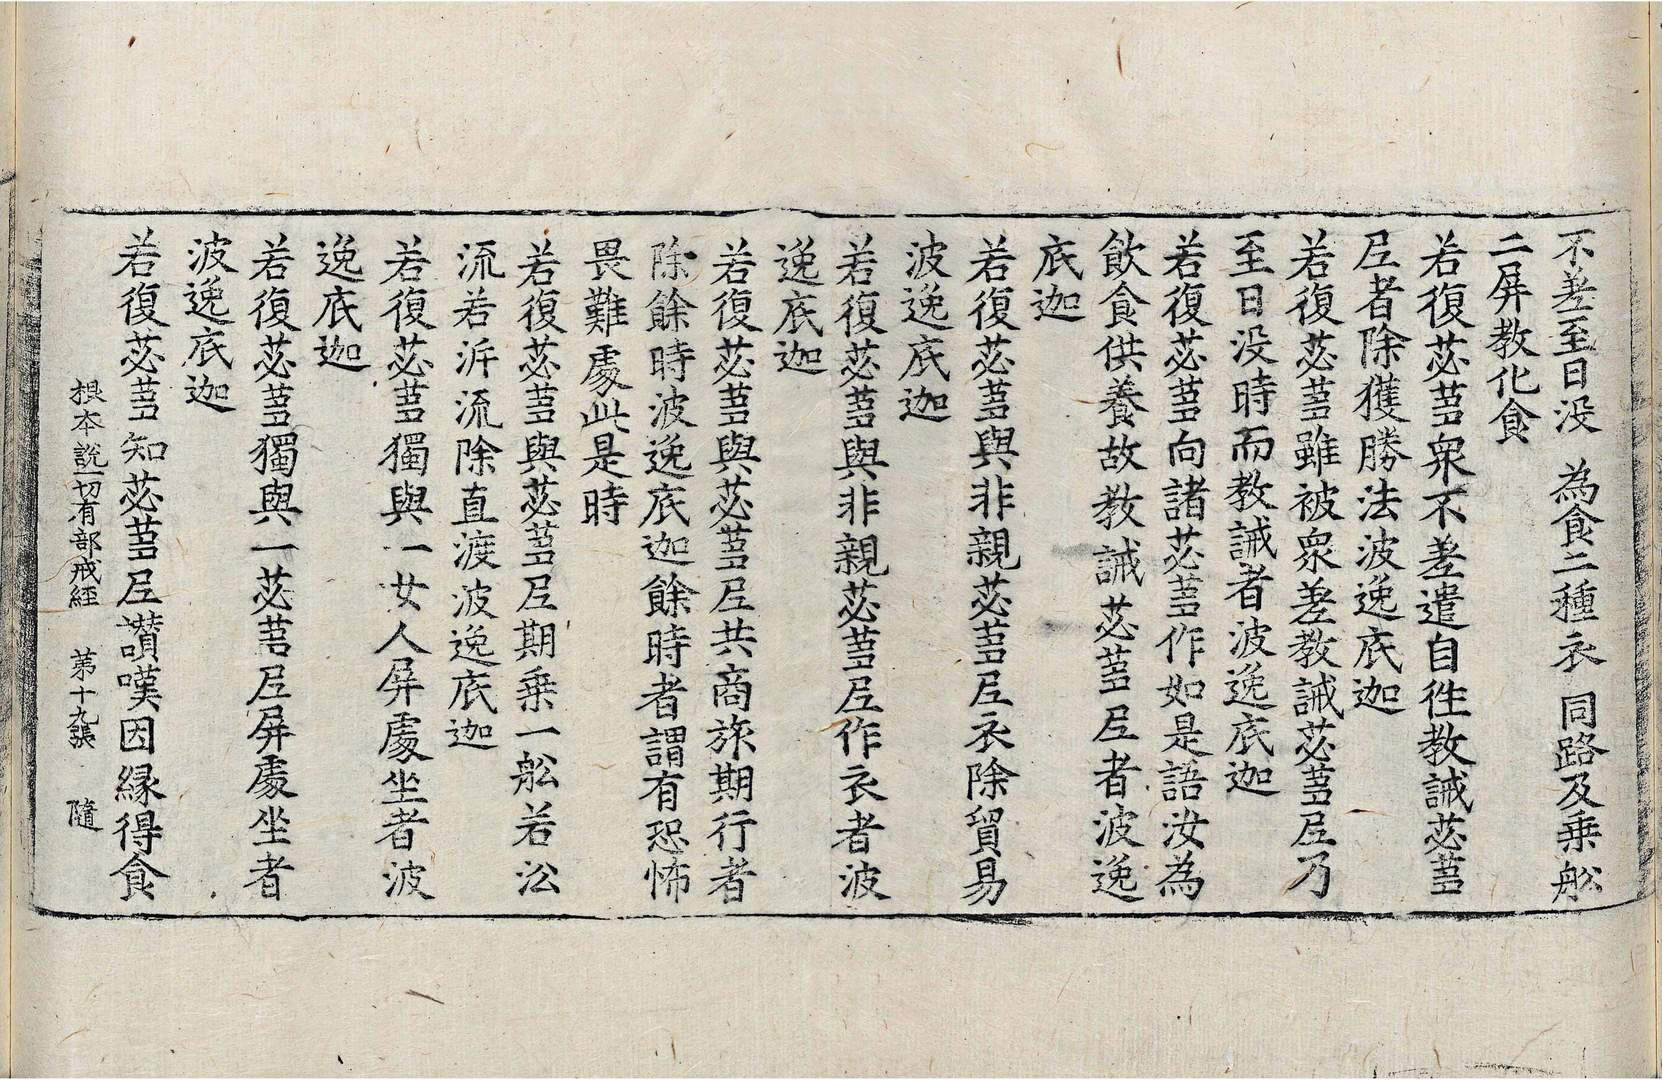 不差至日没　為食二種衣　同路及乗舩
二屏教化食
若復苾蒭衆不差遣自徃教誡苾蒭
尼者除獲勝法波逸底迦
若復苾蒭雖被衆差教誡苾蒭尼乃
至日没時而教誡者波逸底迦
若復苾蒭向諸苾蒭作如是語汝為
飲食供養故教誡苾蒭尼者波逸
底迦
若復苾蒭與非親苾蒭尼衣除貿易
波逸底迦
若復苾蒭與非親苾蒭尼作衣者波
逸底迦
若復苾蒭與苾蒭尼共商旅期行者
除餘時波逸底迦餘時者謂有恐怖
畏難處此是時
若復苾蒭與苾蒭尼期乗一舩若㳂
流若泝流除直渡波逸底迦
若復苾蒭獨與一女人屏處坐者波
逸底迦
若復苾蒭獨與一苾蒭尼屏處坐者
波逸底迦
若復苾蒭知苾蒭尼讃嘆因縁得食
根本説一切有部戒經　第十九張　隨